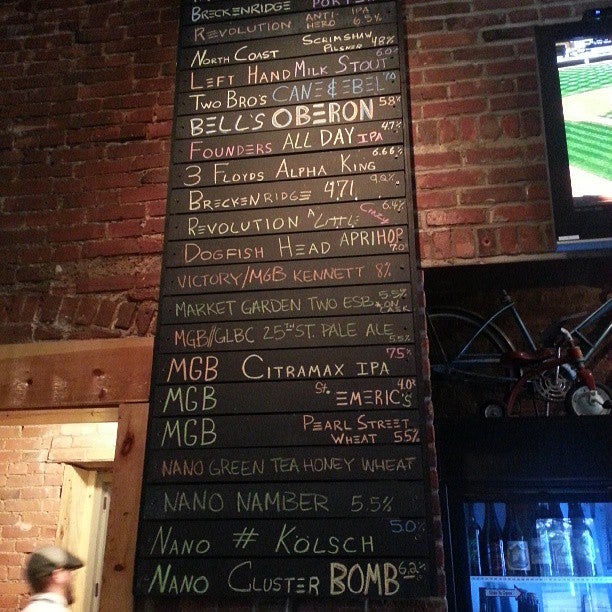 BRECKENRIDGE PORTER
REVOLUTION ANTI-HERO IPA 6.5%
NORTH COAST SCRIMSHAW PILSNER 4.8%
LEFT HAND MILK STOUT 6.0%
TWO BRO'S CANE & EBEL 7.0
BELL'S OBERON 5.8%
FOUNDERS ALL DAY IPA 4.7%
3 FLOYDS ALPHA KING 6.66%
BRECKENRIDGE 471 9.2%
REVOLUTION "A LITTLE CRAZY" 6.4%
DOGFISH HEAD APRIHOP 7.0
VICTORY/MGB KENNETT 8%
MARKET GARDEN TWO ESB 5.5%
MGB//GLBC 25TH ST. PALE ALE 5.5%
MGB CITRAMAX IPA 7.5%
MGB ST. EMERIC'S 4.0%
MGB PEARL STREET WHEAT 5.5%
NANO GREEN TEA HONEY WHEAT
NANO NAMBER 5.5%
NANO # KÖLSCH 5.0%
NANO CLUSTER BOMB 6.2%